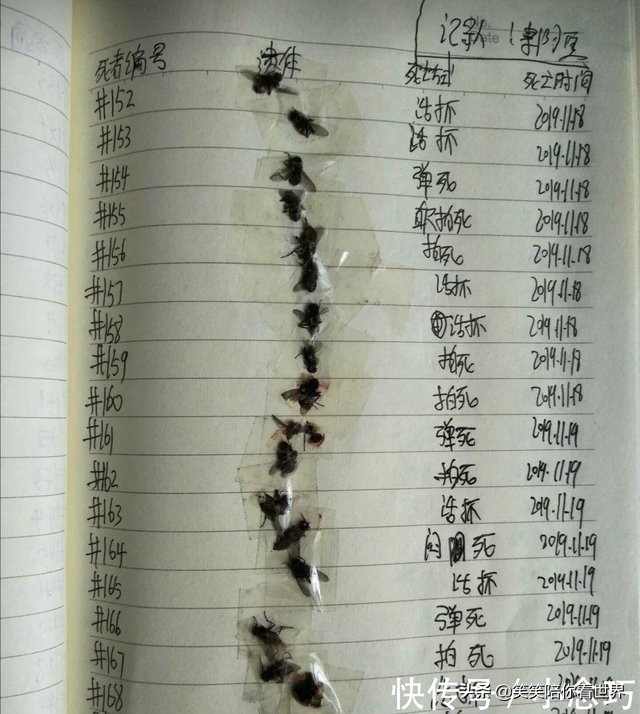 记录
死者编号 遗体 死亡方式 死亡时间
#152 活抓 2019.11.18
#153 活抓 2019.11.18
#154 弹死 2019.11.18
#155 拍死 2019.11.18
#156 拍死 2019.11.18
#157 活抓 2019.11.18
#158 活抓 2019.11.18
#159 拍死 2019.11.18
#160 拍死 2019.11.18
#161 弹死 2019.11.19
#162 拍死 2019.11.19
#163 活抓 2019.11.19
#164 闷死 2019.11.19
#165 活抓 2019.11.19
#166 弹死 2019.11.19
#167 拍死 2019.11.19
#168
快传号/小念巧
头条 @笑笑陪你看世界